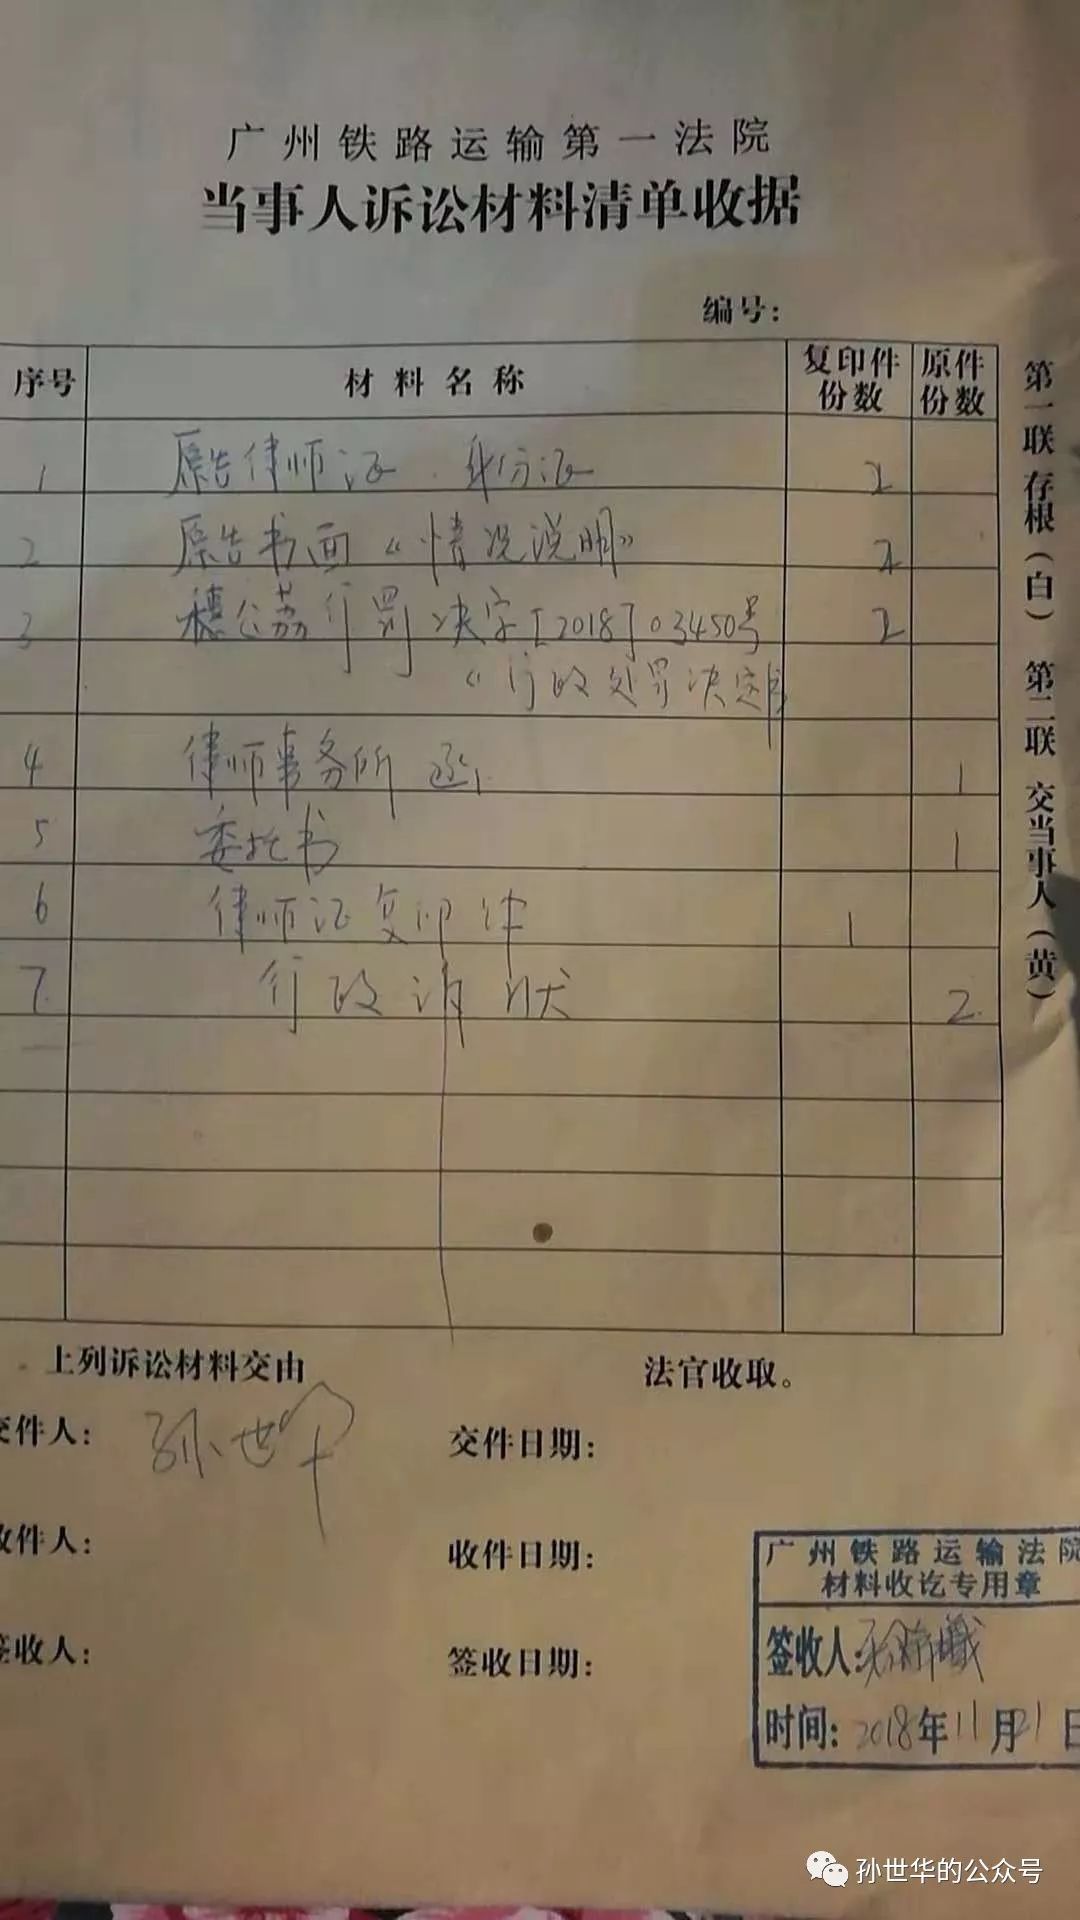 广州铁路运输第一法院
当事人诉讼材料清单收据
编号:
序号 材料名称 复印件份数 原件份数
1 原告律师证、身份证 2
2 原告书面《情况说明》 2
3 穗公荔行罚决字[2018]03450号 2
《行政处罚决定书
4 律师事务所函 1
5 委托书 1
6 律师证复印件 1
7 行政诉状 2
第一联 存根(白) 第二联 交当事人(黄)
上列诉讼材料交由 法官收取。
交件人: 孙世华 交件日期:
收件人: 收件日期:
签收人: 签收日期:
广州铁路运输法院
材料收讫专用章
签收人:
时间: 2018年11月21日
孙世华的公众号